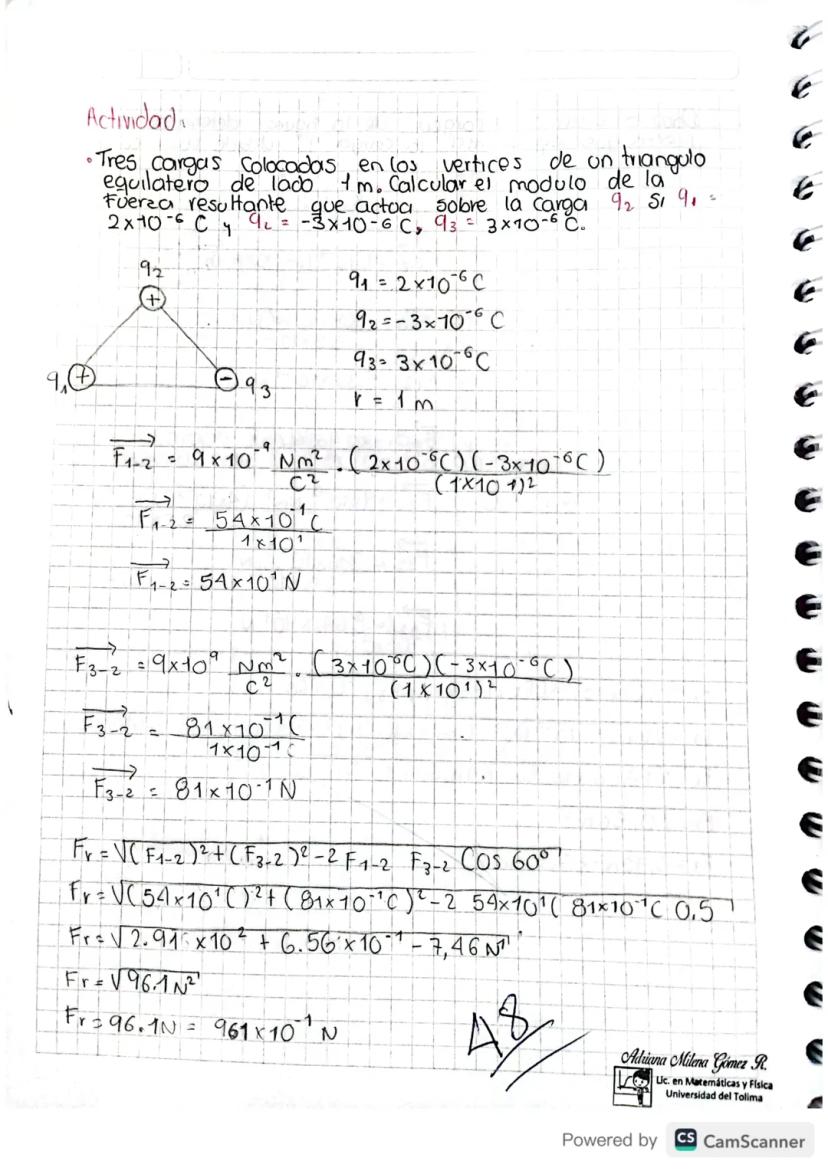 Actividad.
• Tres cargas colocadas en los vertices de un triangulo
equilatero de lado 1 m. Calcular el modulo de la
Fuerza resultante que actua sobre la carga q₂ si q₁ =
2×10-⁶ C y q₂ = -3×10-6 C, q₃ = 3×10-⁶ C.
q₂
+
q₁ +
- q₃
q₁ = 2×10⁻⁶ C
q₂ = -3×10⁻⁶ C
q₃ = 3×10⁻⁶ C
r = 1 m
F₁₋₂ = 9×10⁻⁹ Nm²/C² · (2×10⁻⁶C)(-3×10⁻⁶C)/(1×10 1)²
F₁₋₂ = 54×10⁻¹C/1×10¹
F₁₋₂ = 54×10¹ N
F₃₋₂ = 9×10⁹ Nm²/C² · (3×10⁻⁶C)(-3×10⁻⁶C)/(1×10¹)²
F₃₋₂ = 81×10⁻¹C/1×10⁻¹
F₃₋₂ = 81×10-1 N
Fr = √(F₁₋₂)²+(F₃₋₂)²-2 F₁₋₂ F₃₋₂ Cos 60°
Fr = √(54×10¹C)²+(81×10⁻¹C)²-2 54×10¹( 81×10⁻¹C 0.5
Fr = √2.91 ×10² + 6.56×10⁻¹ - 7,46 N
Fr = √96.1 N²
Fr = 96.1N = 961×10⁻¹ N
48
Adriana Milena Gómez R.
Lic. en Matemáticas y Física
Universidad del Tolima
Powered by CS CamScanner